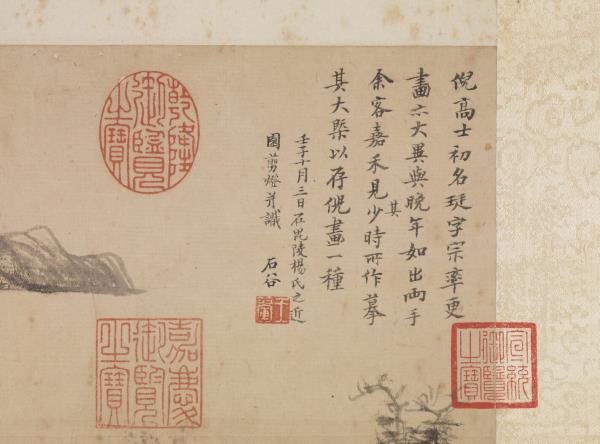 倪高士初名珽字宗率更
畫亦大異與晚年如出兩手
余客嘉禾見其少時所作摹
其大槩以存倪畫一種
壬子十月三日在毘陵楊氏之近
園剪燈并識 石谷
王翬
乾隆御覽之寶
嘉慶御覽之寶
宣統御覽之寶